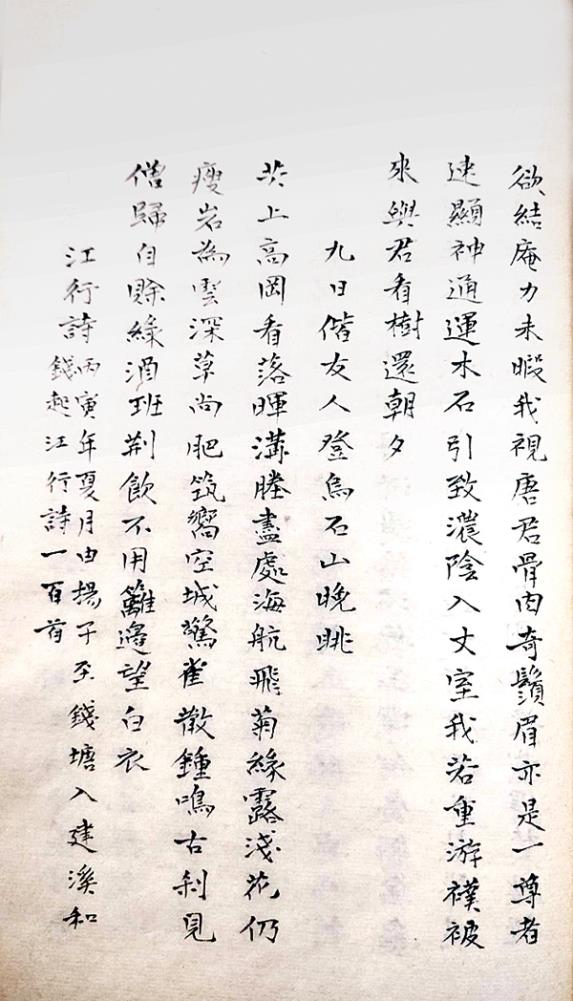 欲結庵力未暇我視唐君骨肉奇鬚眉亦是一尊者
速顯神通運木石引致濃陰入丈室我若重游襆被
來與君看樹還朝夕
九日偕友人登烏石山晚眺
共上高岡看落暉溝塍盡處海航飛菊緣露淺花仍
瘦岩為雲深草尚肥筑嚮空城驚雀散鍾鳴古刹見
僧歸自賖綠酒班荊飲不用籬邊望白衣
江行詩丙寅年夏月由揚子至錢塘入建溪和
錢起江行詩一百首